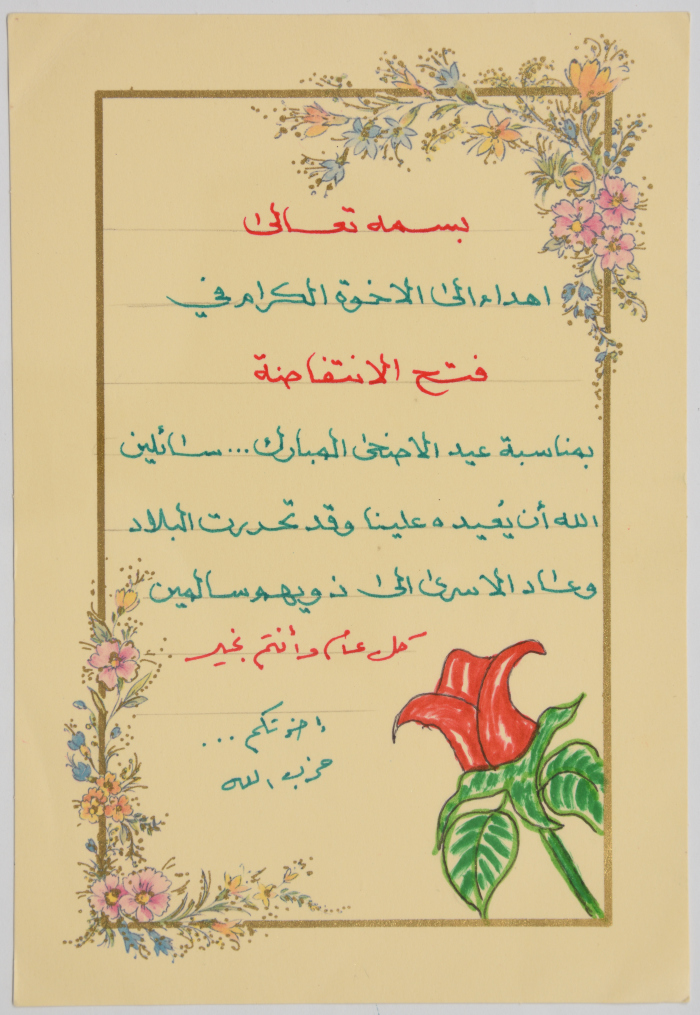 بسمه تعالى
اهداء الى الاخوة الكرام في
فتح الانتفاضة
بمناسبة عيد الاضحى المبارك... سائلين
الله أن يُعيده علينا وقد تحررت البلاد
وعاد الاسرى الى ذويهم سالمين
كل عام وأنتم بخير
إخوتكم...
حزب الله